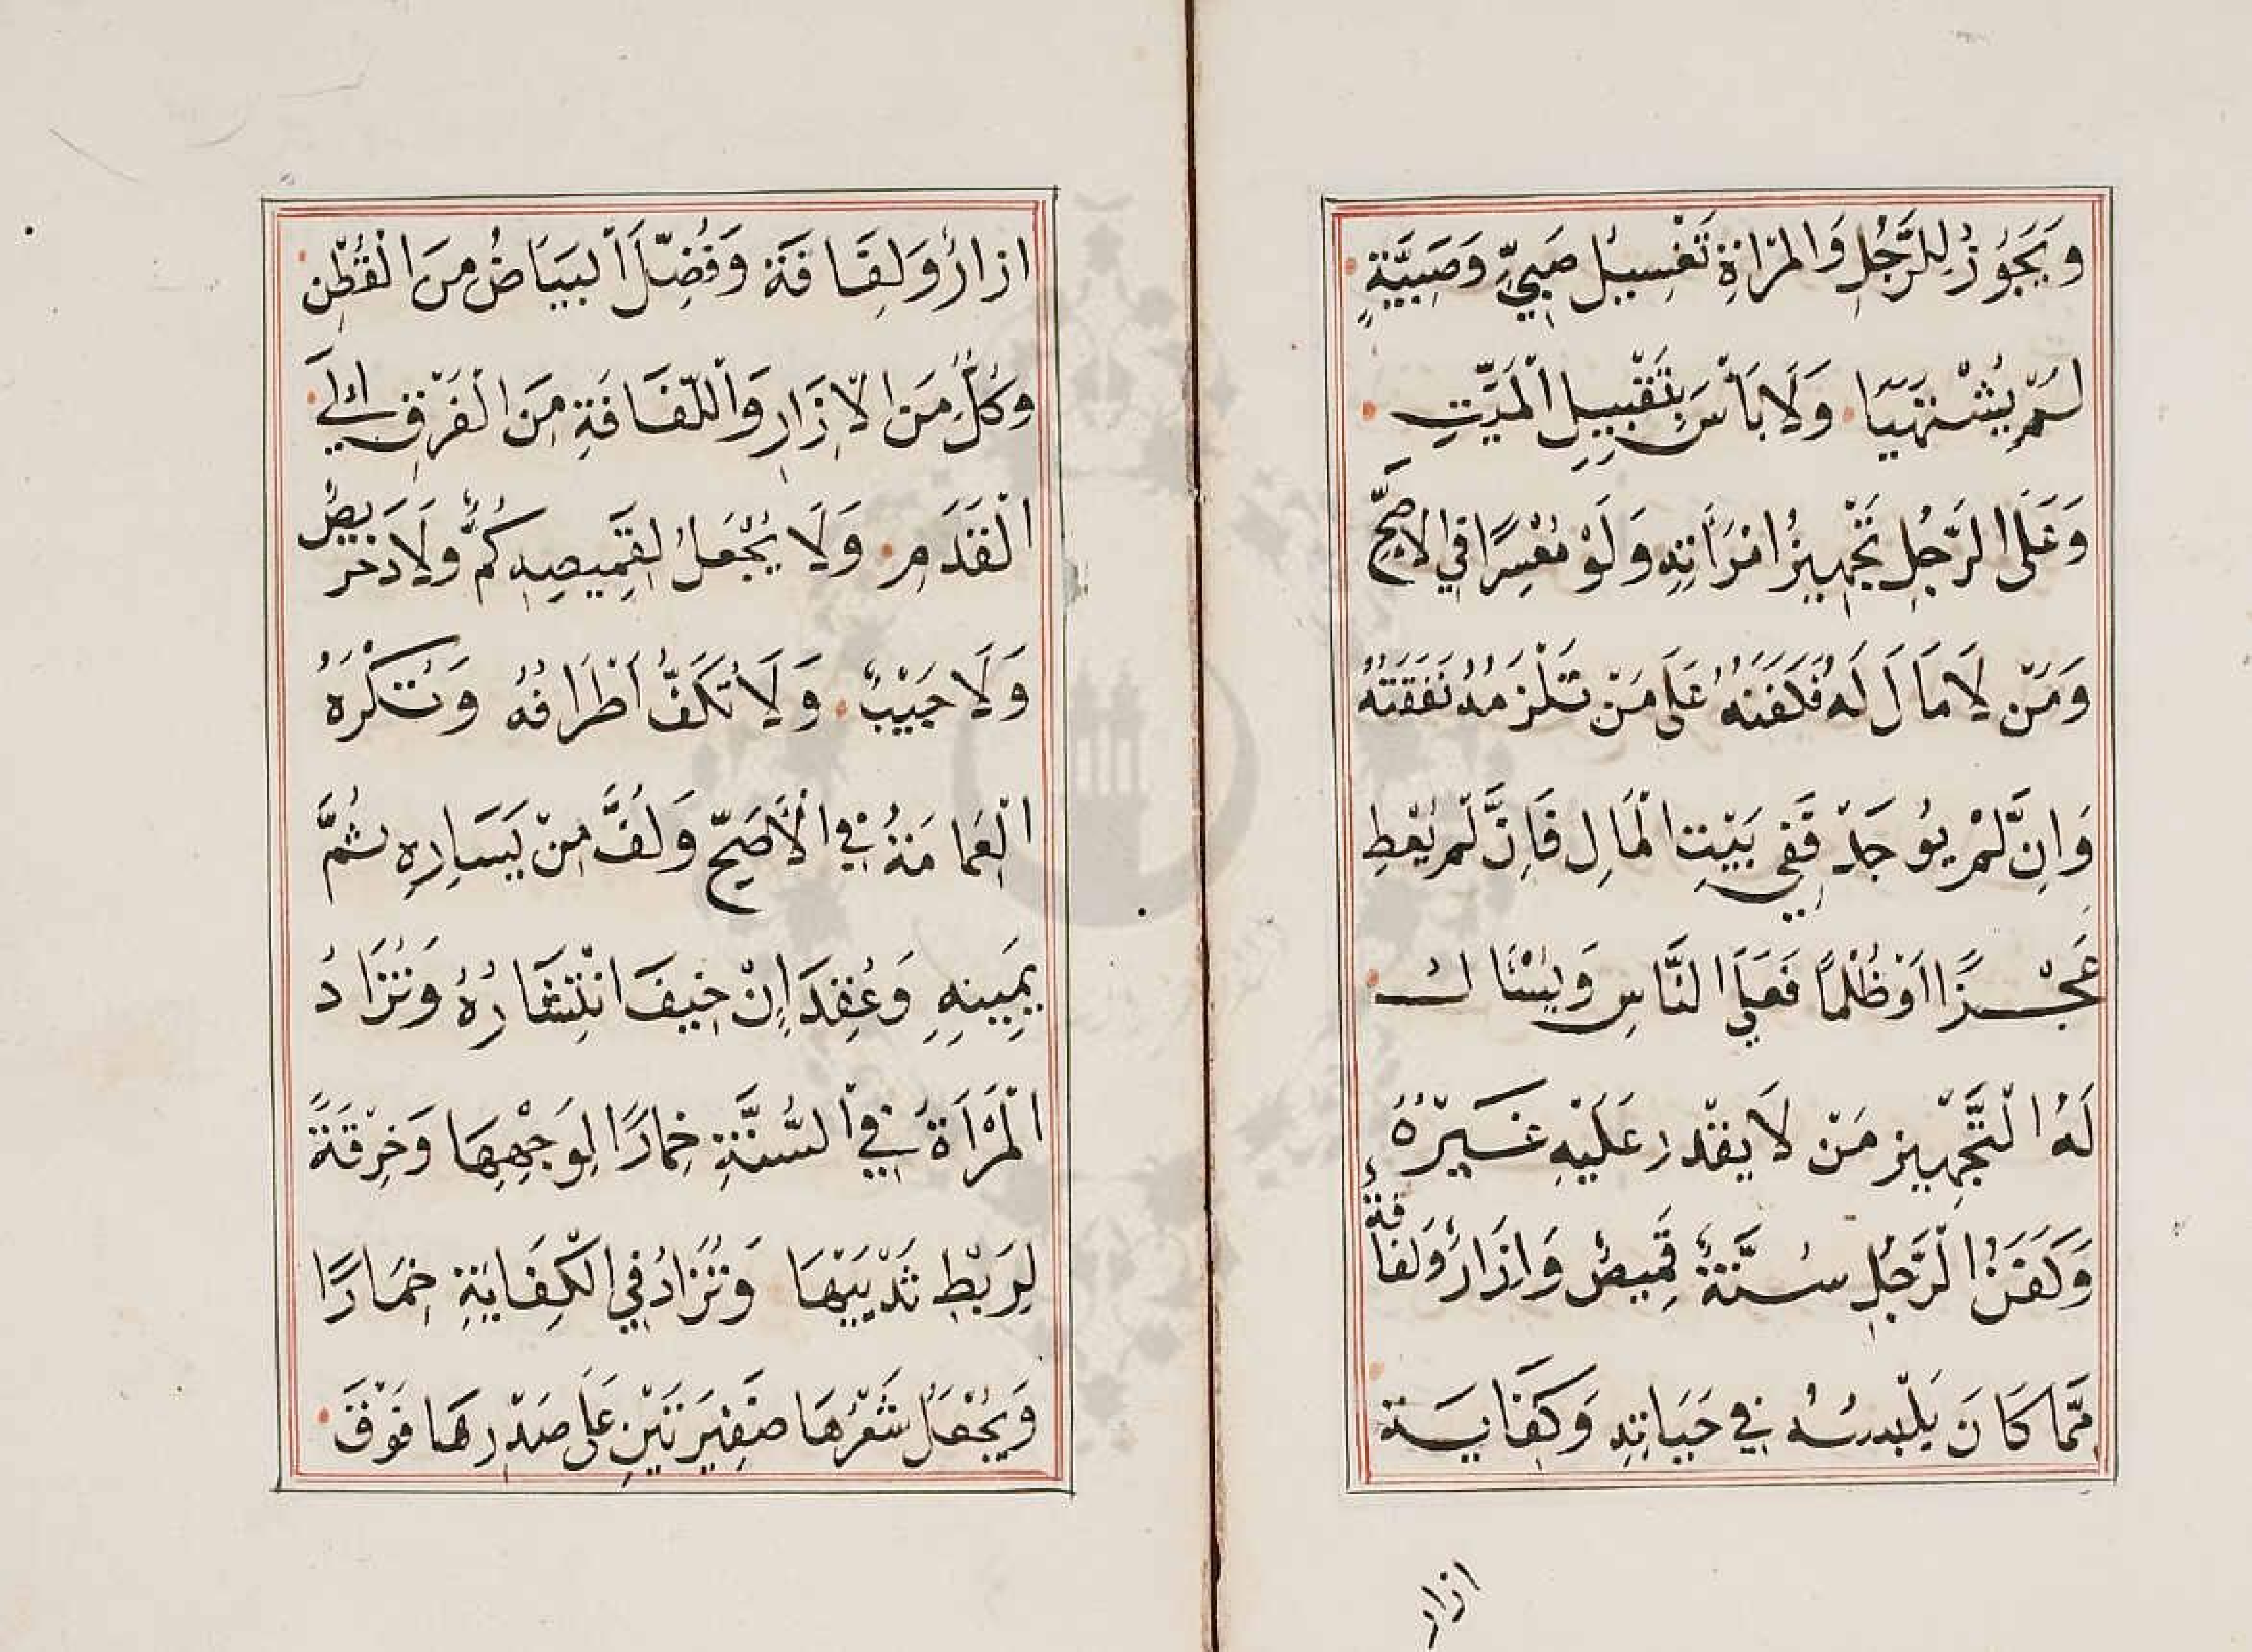 وَيَجُوزُ لِلرَّجُلِ وَالْمَرْاَةِ تَغْسِيلُ صَبِيٍّ وَصَبِيَّةٍ
لَمْ يُشْتَهَيَا وَلَا بَأْسَ بِتَقْبِيلِ الْمَيِّتِ
وَعَلَى الرَّجُلِ تَجْهِيزُ امْرَاَتِهِ وَلَوْ مُعْسِرًا فِي الْاَصَحِّ
وَمَنْ لَا مَالَ لَهُ فَكَفَنُهُ عَلَى مَنْ تَلْزَمُهُ نَفَقَتُهُ
وَاِنْ لَمْ يُوجَدْ فَفِي بَيْتِ الْمَالِ فَاِنْ لَمْ يُعْطِ
عَجْزًا اَوْ ظُلْمًا فَعَلَى النَّاسِ وَيَسْئَالُ
لَهُ التَّجْهِيزَ مَنْ لَا يَقْدِرُ عَلَيْهِ غَيْرُهُ
وَكَفَنُ الرَّجُلِ سُنَّةً قَمِيصٌ وَاِزَارٌ وَلِفَافَةٌ
مِمَّا كَانَ يَلْبَسُهُ فِي حَيَاتِهِ وَكِفَايَة
ازار
اِزَارٌ وَلِفَافَة وَفُضِّلَ الْبَيَاضُ مِنَ الْقُطْنِ
وَكُلٌّ مِنَ الْاِزَارِ وَاللِّفَافَةِ مِنَ الْفَرْقِ اِلَى
الْقَدَمِ وَلَا يُجْعَلُ لِقَمِيصِهِ كُمٌّ وَلَا دَخْرِيصٌ
وَلَا جَيْبٌ وَلَا تُكَفُّ اَطْرَافُهُ وَتُكْرَهُ
الْعِمَامَةُ فِي الْاَصَحِّ وَلُفَّ مِنْ يَسَارِهِ ثُمَّ
يَمِينِهِ وَعُقِدَ اِنْ خِيفَ انْتِشَارُهُ وَتُزَادُ
الْمَرْاَةُ فِي السُّنَّةِ خِمَارًا لِوَجْهِهَا وَخِرْقَةً
لِرَبْطِ ثَدْيَيْهَا وَتُزَادُ فِي الْكِفَايَةِ خِمَارًا
وَيُجْعَلُ شَعْرُهَا ضَفِيرَتَيْنِ عَلَى صَدْرِهَا فَوْقَ